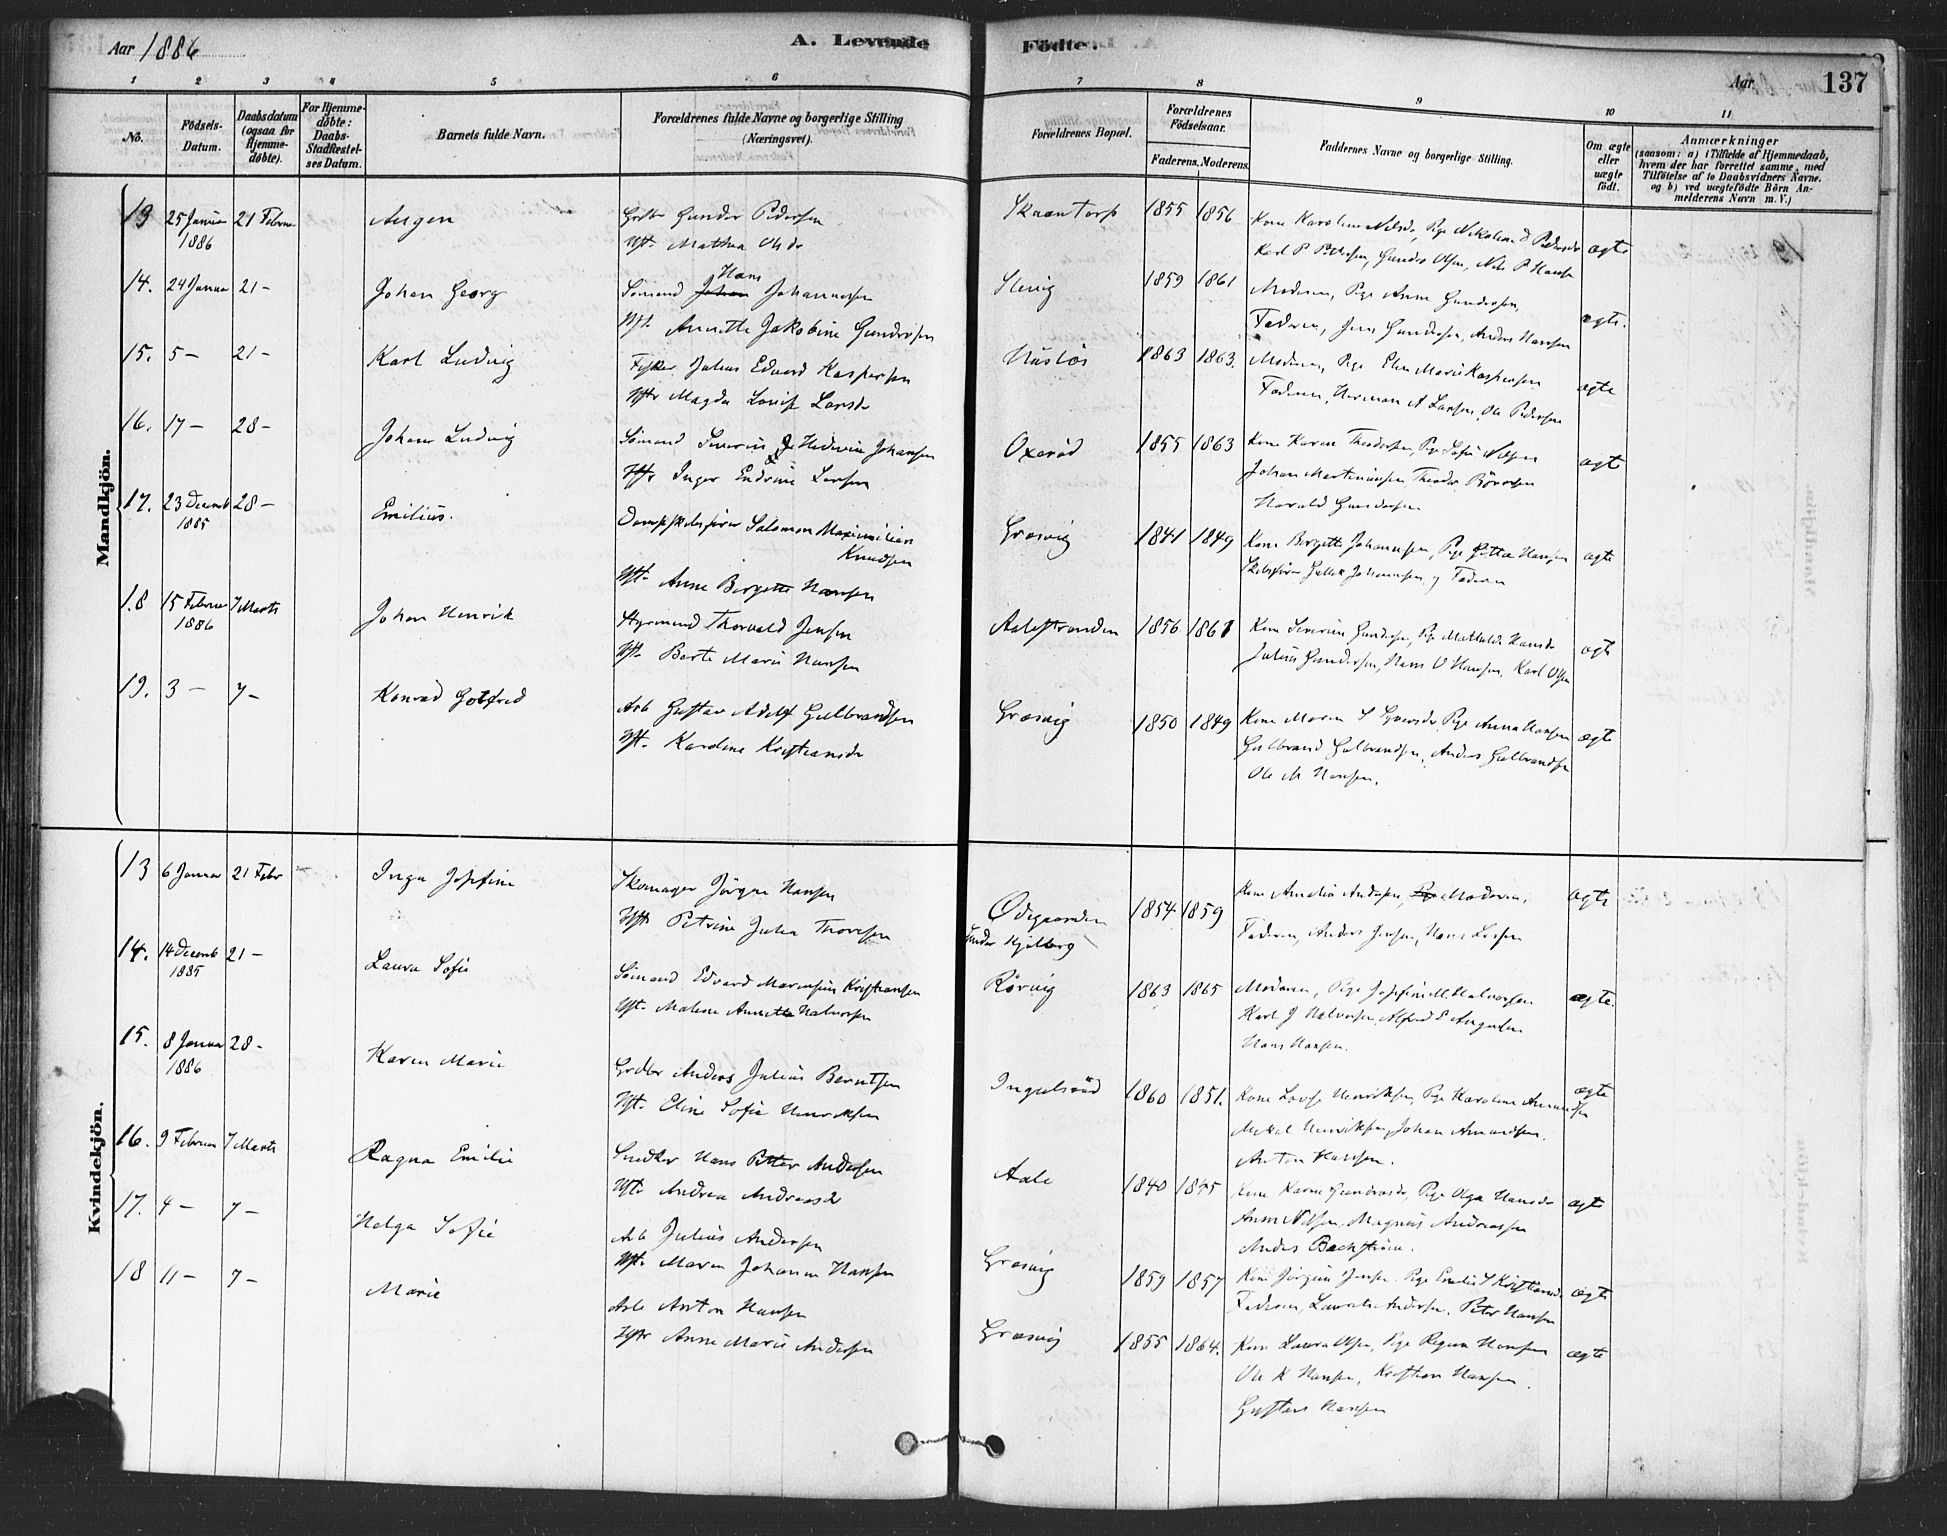 Aar 1886
A. Levende Födte.
Aar 137
1 2 3 4 5 6 7 8 9 10 11
No.
Födsels-Datum.
Daabsdatum (ogsaa for Hjemme-døbte).
For Hjemme-døbte: Daabs-Stadfæstel-ses Datum.
Barnets fulde Navn.
Forældrenes fulde Navne og borgerlige Stilling (Næringsvei).
Forældrenes Bopæl.
Forældrenes Födselsaar.
Faderens. Moderens.
Faddernes Navne og borgerlige Stilling.
Om ægte eller uægte født.
Anmærkninger
(saasom: a) i Tilfælde af Hjemmedaab, hvem der har forrettet samme, med Tilföielse af to Daabsvidners Navne, og b) ved uægtefödte Börn An-melderens Navn m. V.)
Mandkjön.
13 25 Januar 1886 21 Februar Gunder Pedersen 1855 1856 ægte
Karl P Pettersen, Gunder Olsen, Nils P Hansen
14. 24 Januar 21 - Johan Georg Sömand Hans Johannesen 1859 1861 Moderen, Pige Anne Gundersen, ægte.
Hst. Annette Jakobine Gundersen Faderen, Jens Gundersen, Anders Hansen
15. 5 - 21 - Karl Ludvig Fisker Julius Edvard Kaspersen 1863 1863. Moderen, Pige Elen Marie Kaspersen ægte
Hstr Magda Lovise Larsdr Faderen, Herman A Larsen, Ole Pedersen
16. 17 - 28 - Johan Ludvig Sömand Severin Johansen Oxeröd 1855 1863 Kone Karen Theodorsen, Pige Sofie Nilsen ægte
Inger Larsen Johan Martiniussen Theodor
Harald Gundersen
17. 23 Decemb 1885 28 - Emilius. Dampskibsförer Salomon Maximilian Knudsen Græsvig 1841 1849 Kone Birgitte Johannesen, Pige Hansen ægte
Hst. Anne Birgitte Hansen Johannesen og Faderen
18 15 Februar 1886 7 Marts Johan Henrik Styrmand Thorvald Jensen Aalestranden 1856 1861 Kone Severine Gundersen, Pige Mathilde Hansdr ægte
Hst. Berte Marie Hansen Julius Gundersen, Hans O Hansen, Karl Olsen
19. 3 - 7 - Konrad Gotfred Arb Gustav Adolf Gulbrandsen Græsvig 1850 1849 Kone Maren S Pige Anna Hansen ægte
Hst. Karoline Kristiansdr Gulbrand Gulbrandsen, Anders Gulbrandsen
Ole M Hansen.
Kvindekjön.
13 6 Januar 21 Febr Inga Josefine Skomager Jörgen Hansen Ödegaarden under Kjölberg 1854 1859 Kone Amalie Andersen, Moderen, ægte
Hstr Petrine Julie Thoresen Faderen, Anders Jensen, Hans Larsen
14. 14 Decemb 1885 21 - Laura Sofie Sömand Edvard Kristiansen Rörvig 1863 1865 Moderen, Pige Josefine M. Halvorsen ægte.
Hst. Malene Annette Halvorsen Karl J Halvorsen, Alfred E Augustsen
Hans Hansen.
15. 8 Januar 1886 28 - Karen Marie Anders Julius Berntsen Ingulsröd 1860 1851. Kone Henriksen, Pige Karoline Amundsen ægte
Hst. Eline Sofie Henriksen Mikal Henriksen, Johan Amundsen.
Anton Hansen.
16. 9 Februar 7 Marts Ragna Emilie Snedker Hans Petter Andersen Aale 1840 1845 Kone Karen Pige Olga Hansdr ægte
Hstr Andrea Andreasdr Anne Nilsen, Magnus Andreassen
Anders Backström.
17. 4 - 7 - Helga Sofie Arb Julius Andersen Græsvig 1859 1857 Kone Jörgine Jensen. Pige Emilie S Kristiansdr ægte
Hst. Maren Johanne Hansen Faderen, Andersen, Peter Hansen
18 11 - 7 - Marie Arb Anton Hansen Græsvig 1855 1864. Kone Laura Olsen, Pige Hansen ægte
Hstr Anne Marie Andersen Ole K Hansen, Kristian Hansen.
Gustav Hansen